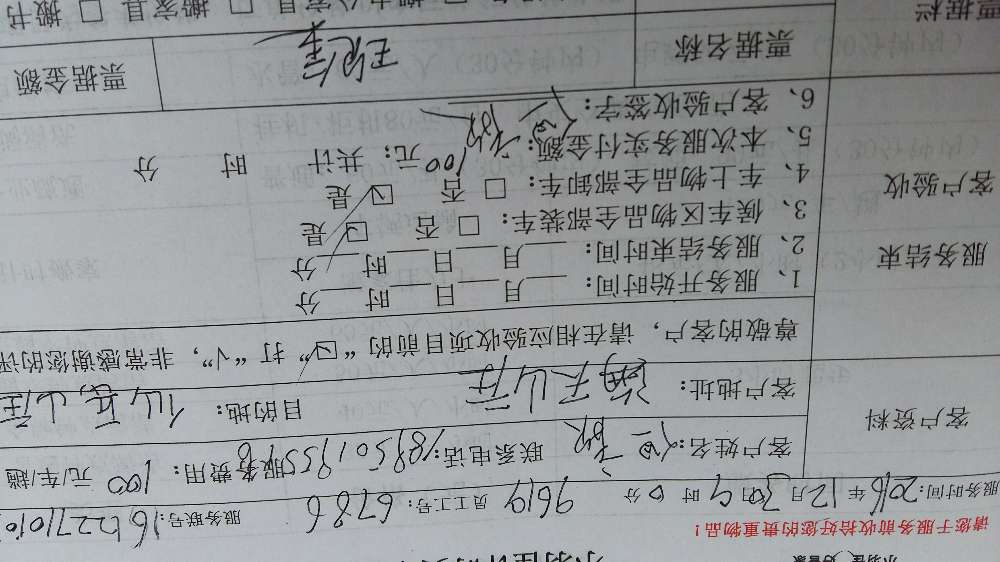 请您于服务前收拾好您的贵重物品！
服务时间：2016年12月30日9时0分 9619 员工工号：6786 服务联号：16122710101
客户资料
客户姓名： 联系电话：18950195598 服务费用：100元/车/趟
客户地址： 天山庄 目的地：仙岳山庄
尊敬的客户，请在相应验收项目前的“☑”打“√”，非常感谢您的评
服务结束
客户验收
1、服务开始时间：____月____日____时____分
2、服务结束时间：____月____日____时____分
3、候车区物品全部装车：□ 否 ☑ 是
4、车上物品全部卸车：□ 否 ☑ 是
5、本次服务实付金额：100元；共计 时 分
6、客户验收签字：
票据栏
票据名称
票据金额
□ 搬家具 □ 搬书